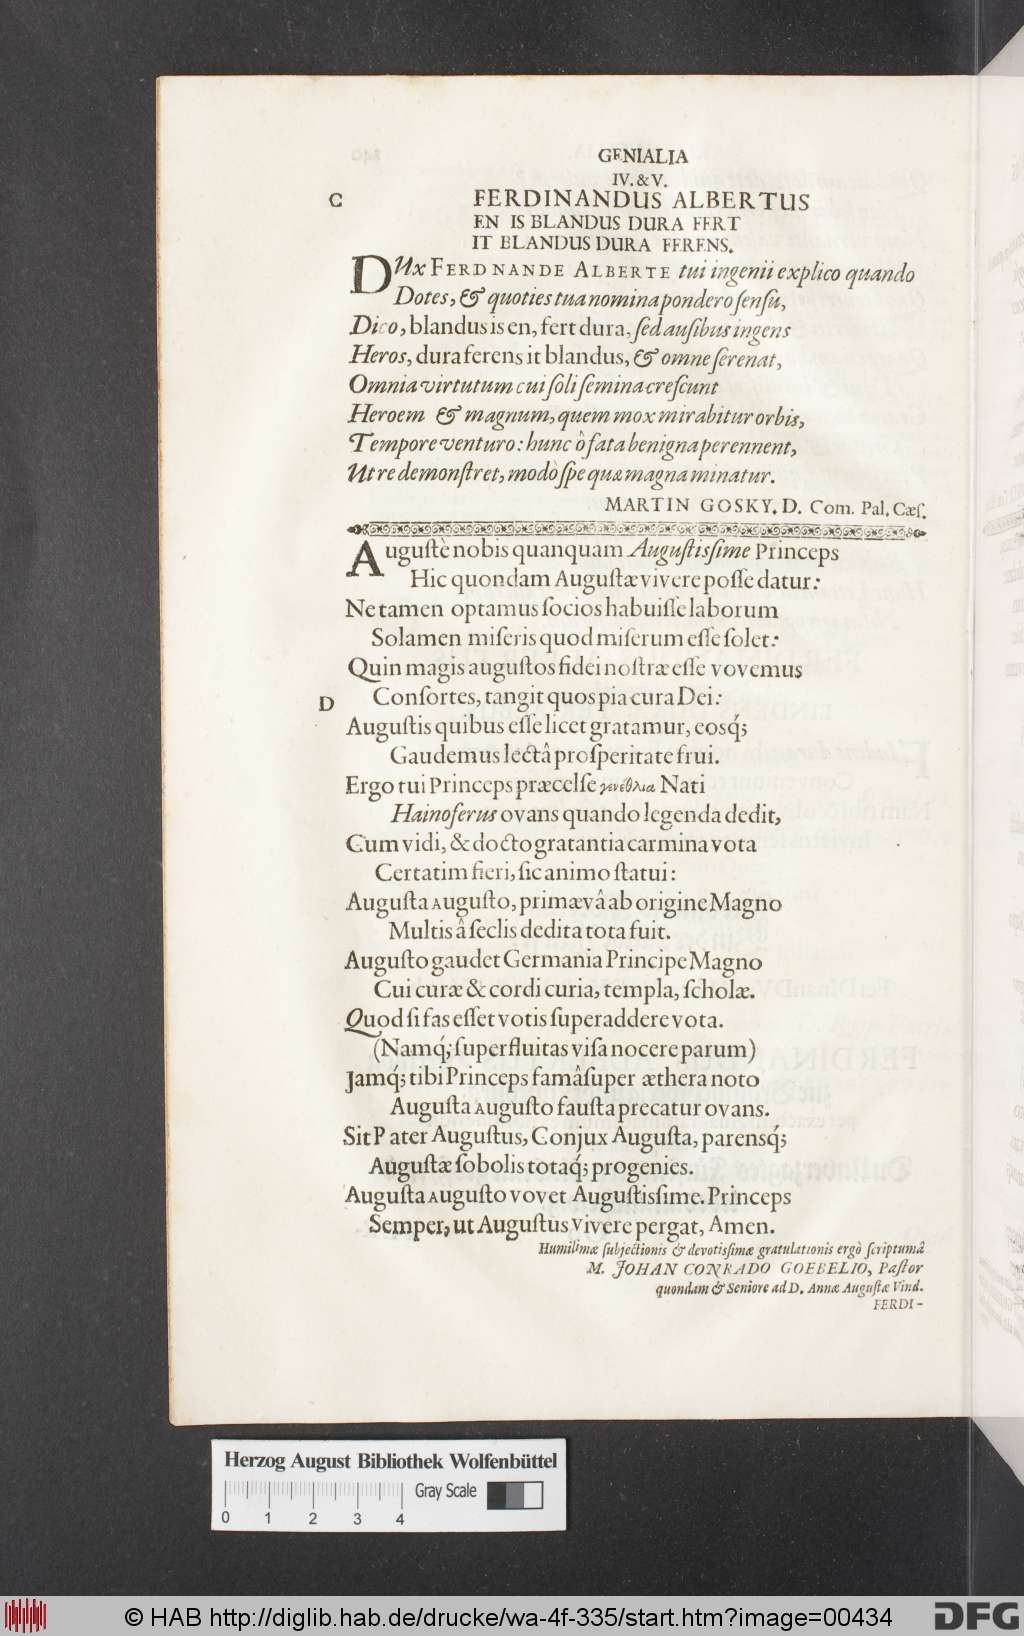 GENIALIA
IV. & V.
C
FERDINANDUS ALBERTUS
EN IS BLANDUS DURA FERT
IT BLANDUS DURA FERENS.
DUx FERDNANDE ALBERTE tui ingenii explico quando
Dotes, & quoties tua nomina pondero ſenſu,
Dico, blandus is en, fert dura, ſed auſibus ingens
Heros, dura ferens it blandus, & omne ſerenat,
Omnia virtutum cui ſoli ſemina creſcunt
Heroem & magnum, quem mox mirabitur orbis,
Tempore venturo: hunc ô fata benigna perennent,
Ut re demonſtret, modò ſpe quæ magna minatur.
MARTIN GOSKY. D. Com. Pal. Cæſ.
Auguſtè nobis quanquam Auguſtiſsime Princeps
Hic quondam Auguſtæ vivere poſſe datur:
Ne tamen optamus ſocios habuiſſe laborum
Solamen miſeris quod miſerum eſſe ſolet:
Quin magis auguſtos fidei noſtræ eſſe vovemus
D
Conſortes, tangit quos pia cura Dei:
Auguſtis quibus eſſe licet gratamur, eosq́;
Gaudemus lectâ proſperitate frui.
Ergo tui Princeps præcelſe γενέθλια Nati
Hainoferus ovans quando legenda dedit,
Cum vidi, & docto gratantia carmina vota
Certatim fieri, ſic animo ſtatui:
Auguſta Auguſto, primævâ ab origine Magno
Multis â ſeclis dedita tota fuit.
Auguſto gaudet Germania Principe Magno
Cui curæ & cordi curia, templa, ſcholæ.
Quod ſi fas eſſet votis ſuperaddere vota.
(Namq́; ſuperfluitas viſa nocere parum)
Jamq́; tibi Princeps famâ ſuper æthera noto
Auguſta Auguſto fauſta precatur ovans.
Sit Pater Auguſtus, Conjux Auguſta, parensq́;
Auguſtæ ſobolis totaq́; progenies.
Auguſta Auguſto vovet Auguſtiſsime. Princeps
Semper, ut Auguſtus vivere pergat, Amen.
Humilimæ ſubjectionis & devotiſsimæ gratulationis ergò ſcriptumâ
M. JOHAN CONRADO GOEBELIO, Paſtor
quondam & Seniore ad D. Annæ Auguſtæ Vind.
FERDI-
Herzog August Bibliothek Wolfenbüttel
Gray Scale
0 1 2 3 4
© HAB http://diglib.hab.de/drucke/wa-4f-335/start.htm?image=00434
DFG